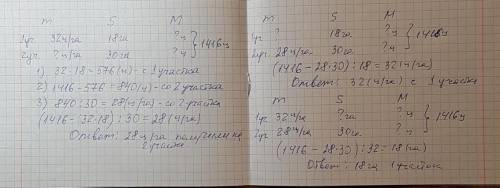 m S M
1уч 32ц/га 18га ?ц } 1416ц
2уч ?ц/га 30га ?ц
1) 32·18=576(ц)-с 1 участка
2) 1416-576=840(ц)-со 2 участка
3) 840:30=28(ц/га)-со 2 участка
(1416-32·18):30=28(ц/га)
Ответ: 28 ц/га получили на
2 участке
m S M
1уч ? 18га ?ц } 1416ц
2уч 28ц/га 30га ?ц
(1416-28·30):18=32(ц/га)
Ответ: 32(ц/га) с 1 участка
m S M
1уч 32ц/га ?га ?ц } 1416ц
2уч 28ц/га 30га ?ц
(1416-28·30):32=18(га)
Ответ: 18га 1 участок